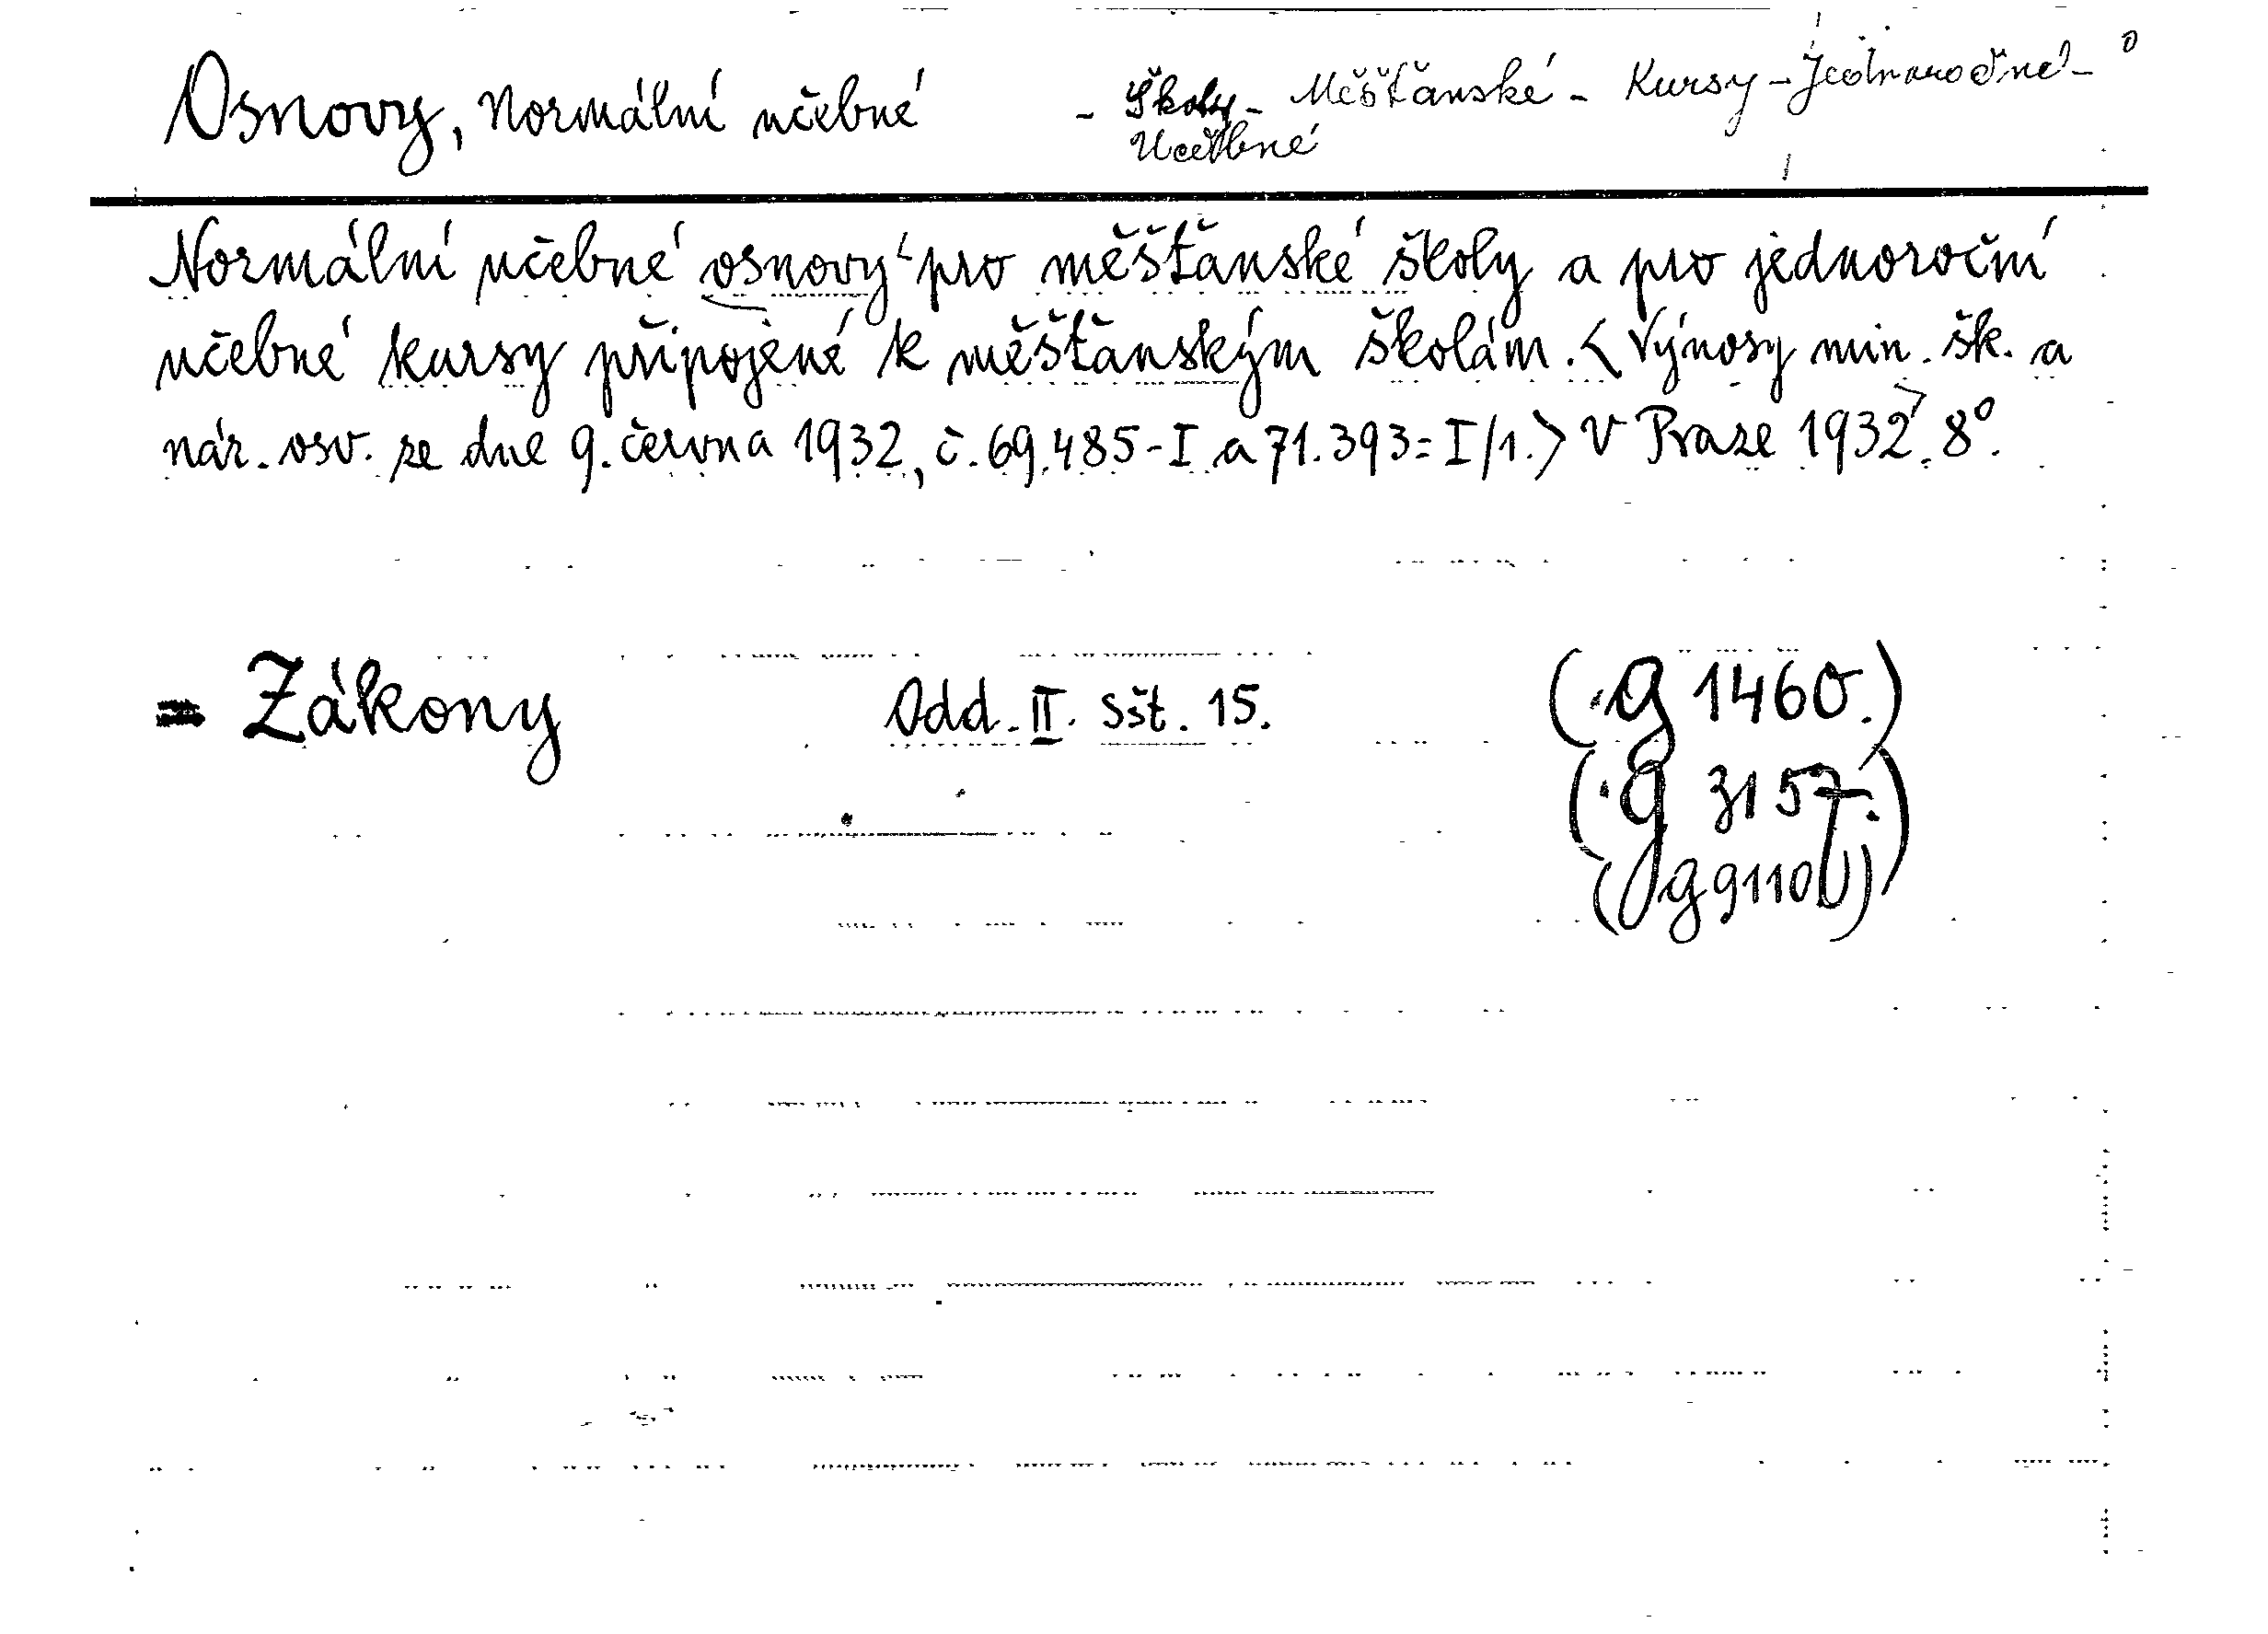 Osnovy, Normální učebné - Školy - Měšťanské - Kursy - Jednoročné -
Učebné
Normální učebné osnovy pro měšťanské školy a pro jednoroční
učebné kursy připojené k měšťanským školám. < Výnosy min. šk. a
nár. osv. ze dne 9. června 1932, č. 69.485-I a 71.393=I/1.> V Praze 1932. 8°.
= Zákony Odd. II. Sšt. 15. (g 1460.)
(g 3157.)
(g 9110)